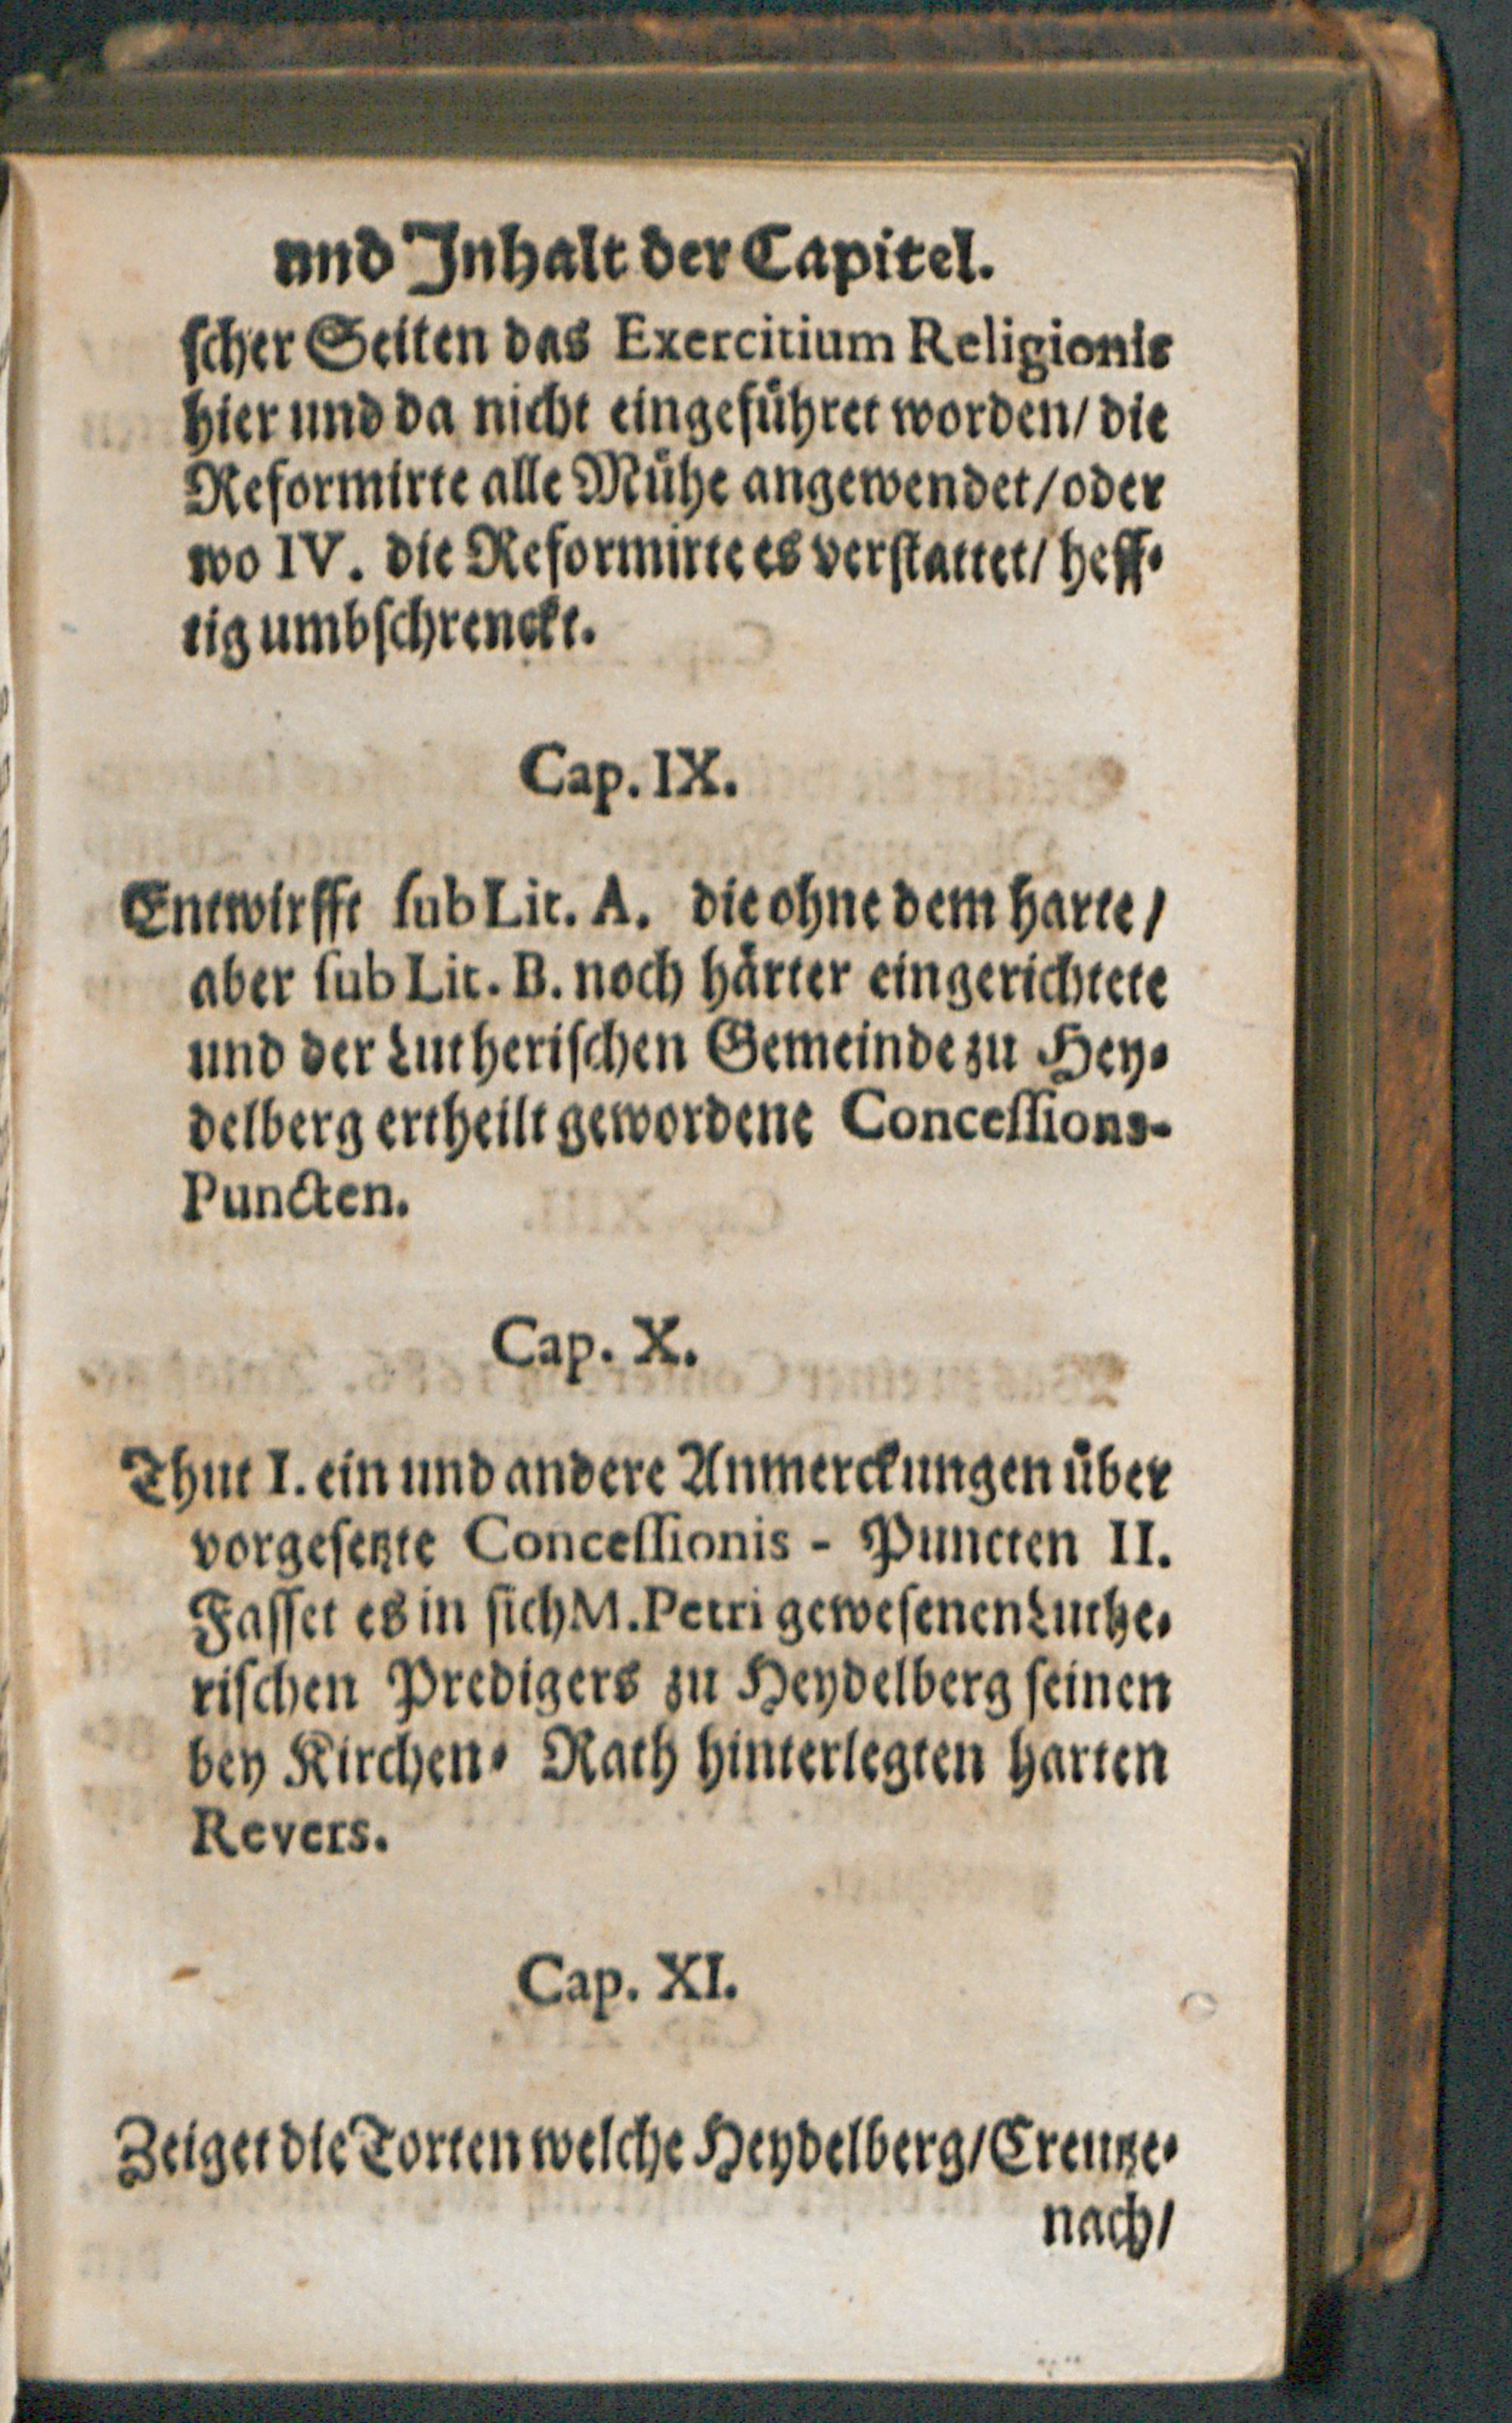 und Jnhalt der Capitel.
ſcher Seiten das Exercitium Religionis
hier und da nicht eingefuͤhret worden/ die
Reformirte alle Muͤhe angewendet/ oder
wo IV. die Reformirte es verſtattet/ heff⸗
tig umbſchrenckt.
Cap. IX.
Entwirfft ſub Lit. A. die ohne dem harte/
aber ſub Lit. B. noch haͤrter eingerichtete
und der Lutheriſchen Gemeinde zu Hey⸗
delberg ertheilt gewordene Conceſſions-
Puncten.
Cap. X.
Thut I. ein und andere Anmerckungen uͤber
vorgeſetzte Conceſſionis - Puncten II.
Faſſet es in ſich M. Petri geweſenen Luthe⸗
riſchen Predigers zu Heydelberg ſeinen
bey Kirchen⸗ Rath hinterlegten harten
Revers.
Cap. XI.
Zeiget die Torten welche Heydelberg/ Creutze⸗
nach/